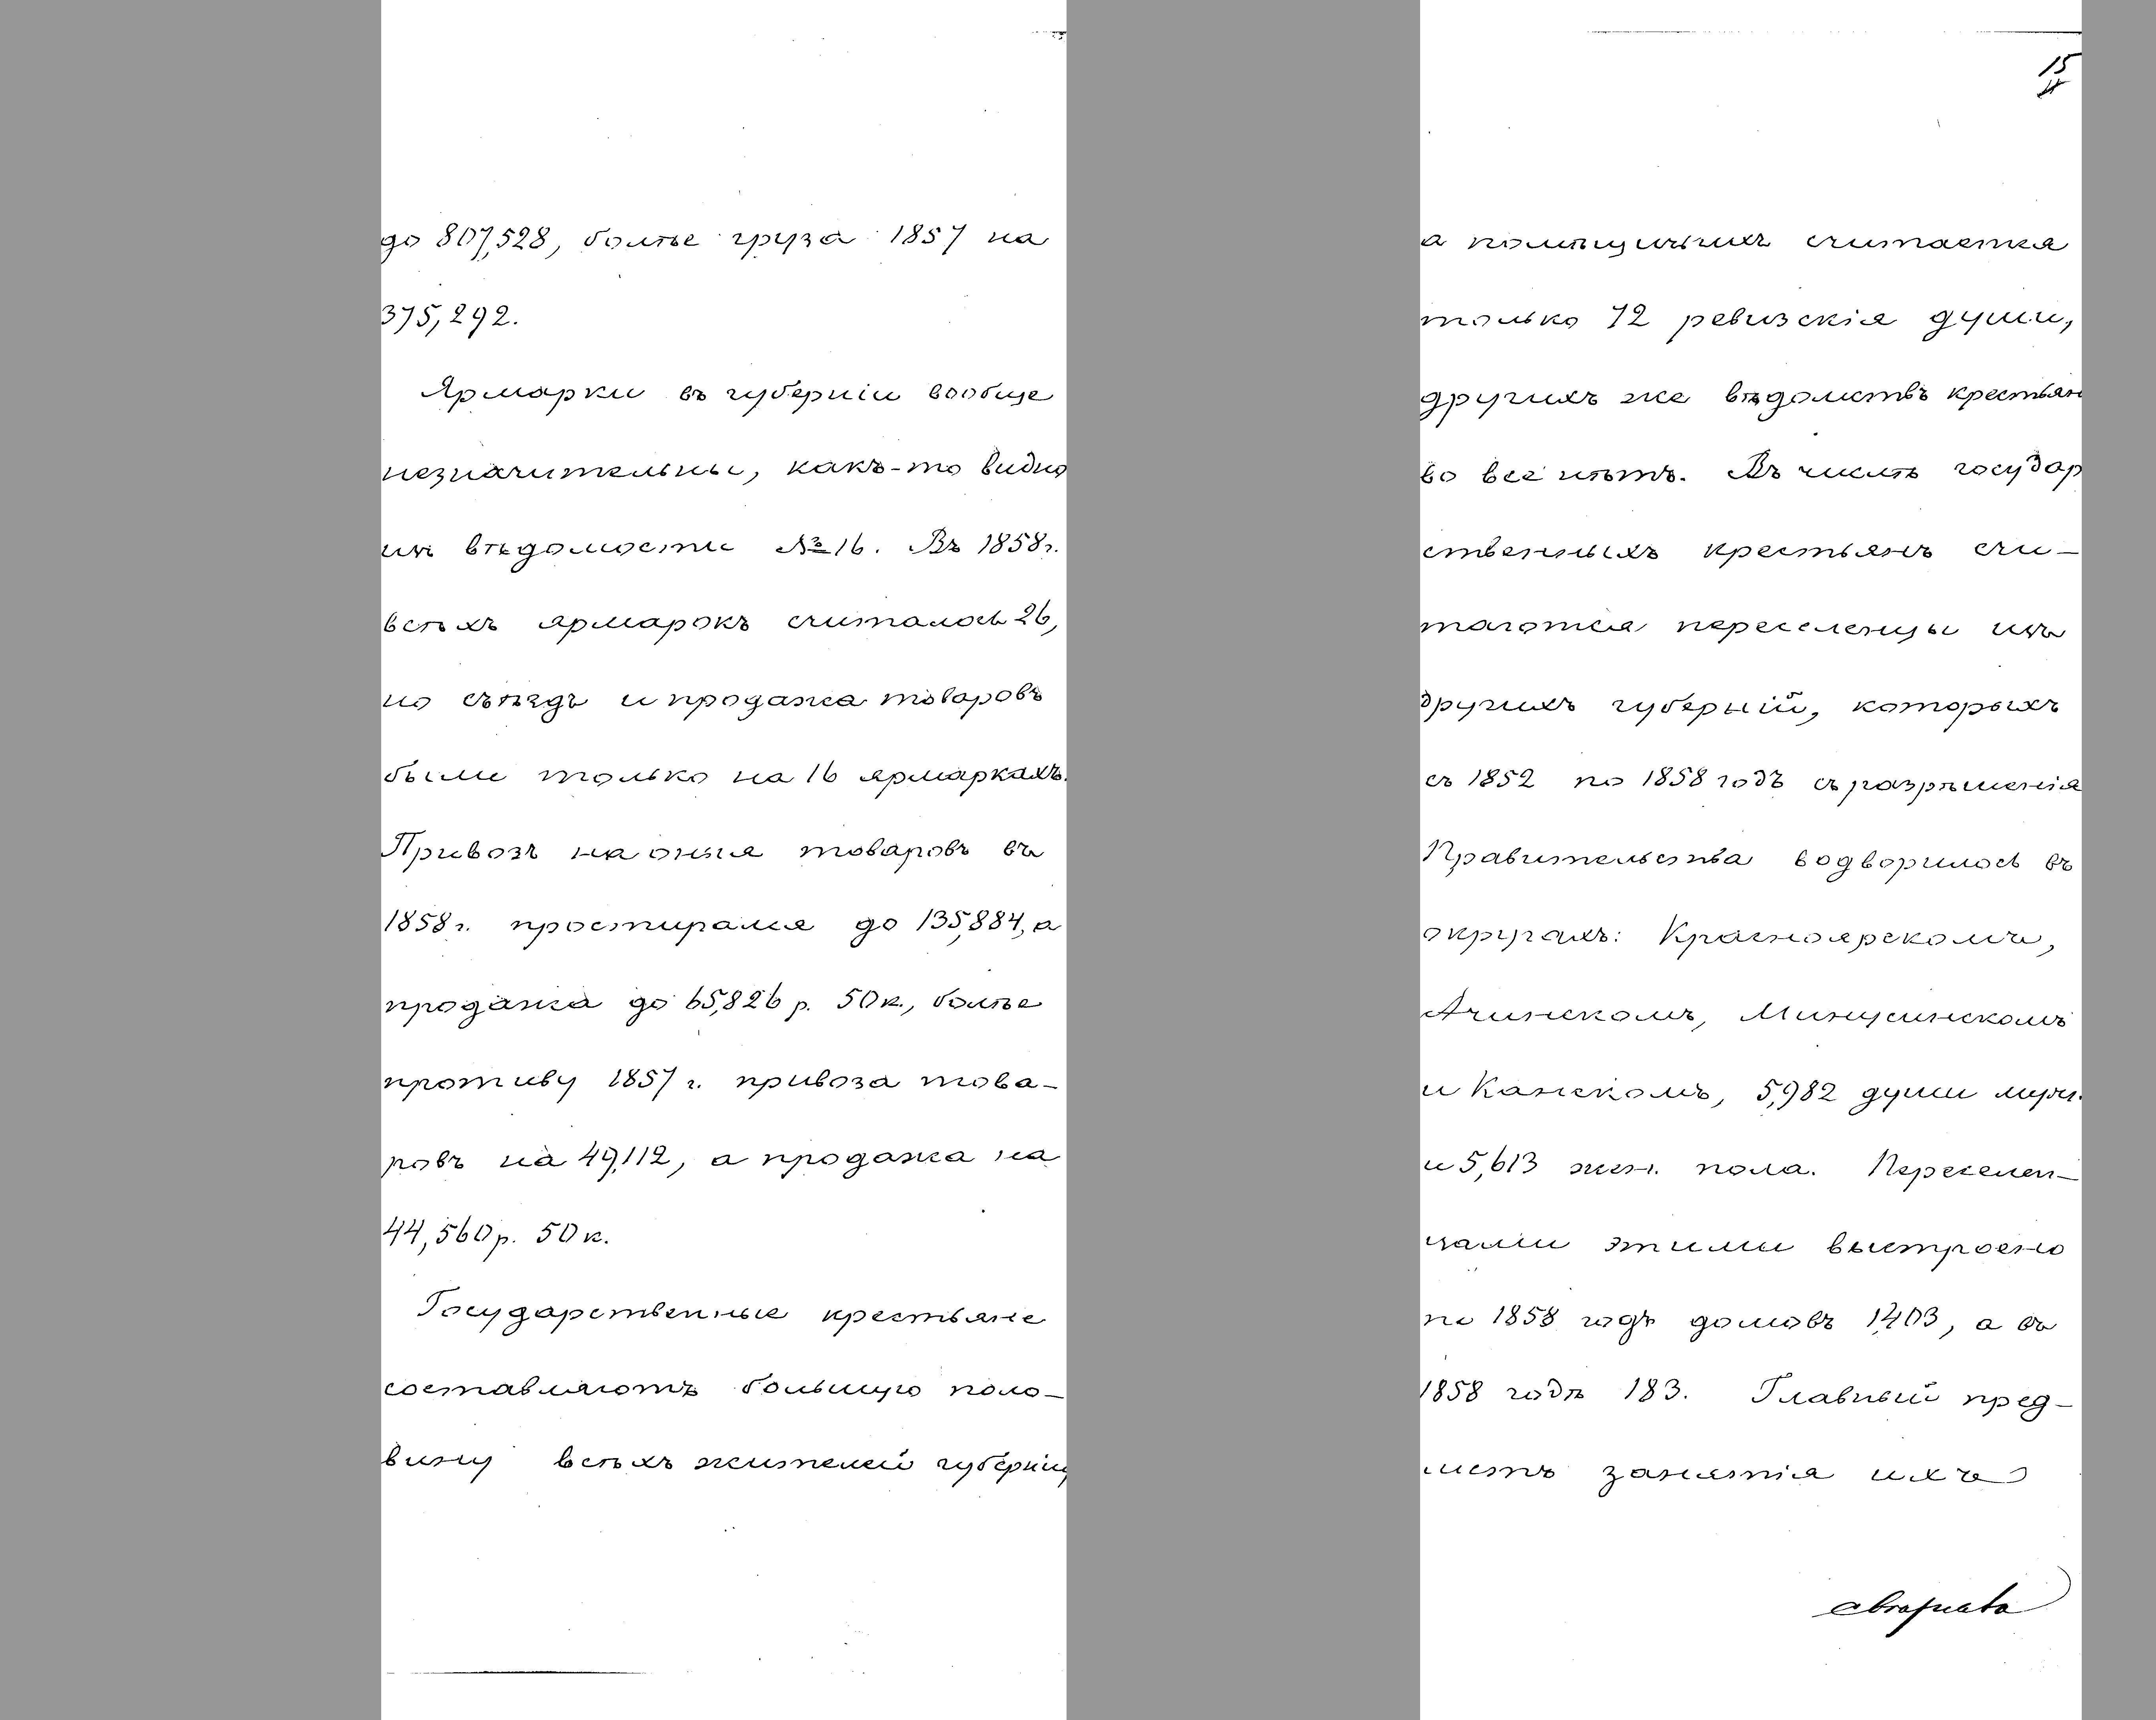 до 807,528, болѣе груза 1857 на
375,292.
Ярмарки въ губерніи вообще
незначительны, какъ-то видно
изъ вѣдомости №16. Въ 1858г.
всѣхъ ярмарокъ считалось 26,
но съѣздъ и продажа товаровъ
были только на 16 ярмаркахъ.
Привозъ на оныя товаровъ въ
1858г. простирался до 135,884, а
продажа до 65,826 р. 50 к., болѣе
противу 1857 г. привоза това-
ровъ на 49,112, а продажа на
44,560р. 50 к.
Государственные крестьяне
составляютъ большую поло-
вину всѣхъ жителей губерніи,
15
а помѣщичьихъ считается
только 72 ревизскія души,
другихъ же вѣдомствъ крестьян
во все нѣтъ. Въ числѣ государ
ственныхъ крестьянъ счи-
таются переселенцы изъ
другихъ губерній, которыхъ
съ 1852 по 1858 годъ съ разрѣшенія
Правительства водворилось въ
округахъ: Красноярскомъ,
Ачинскомъ, Минусинскомъ
и Канскомъ, 5,982 души муж.
и 5,613 жен. пола. Переселен-
цами этими выстроено
по 1858 годъ домовъ 1,403, а въ
1858 годѣ 183. Главный пред-
метъ занятія ихъ